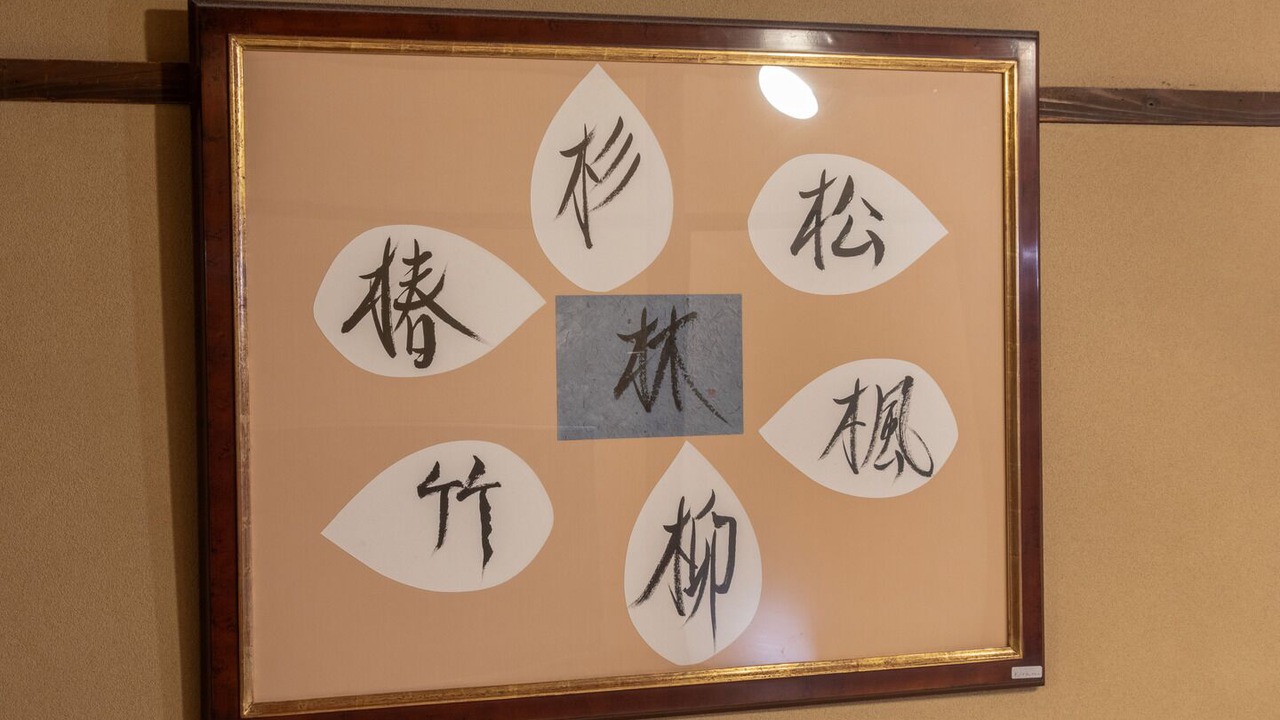 杉
松
椿
林
楓
竹
柳